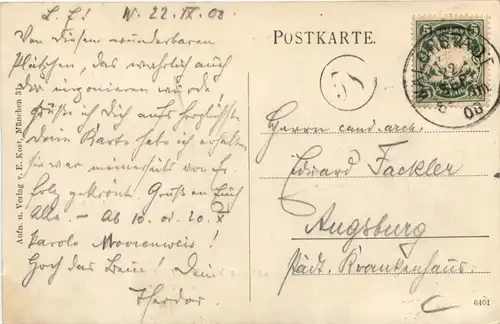 L. F! W. 22. IX. 08.
Von diesem wunderbaren
Plätzchen, das wahrlich auch
Dir imponieren würde,
Grüße ich Dich aufs herzlichste
Deine Karte habe ich erhalten
sie war meinerseits von
Erfolg gekrönt. Gruß an Euch
Alle. – Ab 10. od. 20. X
Parole Moorenweis!
Hoch das Bein! Dein
Theodor
Aufn. u. Verlag v. E. Kost, München 31.
POSTKARTE.
5
Herrn cand. arch.
Edward Fackler
Augsburg
Städt. Krankenhaus.
6401